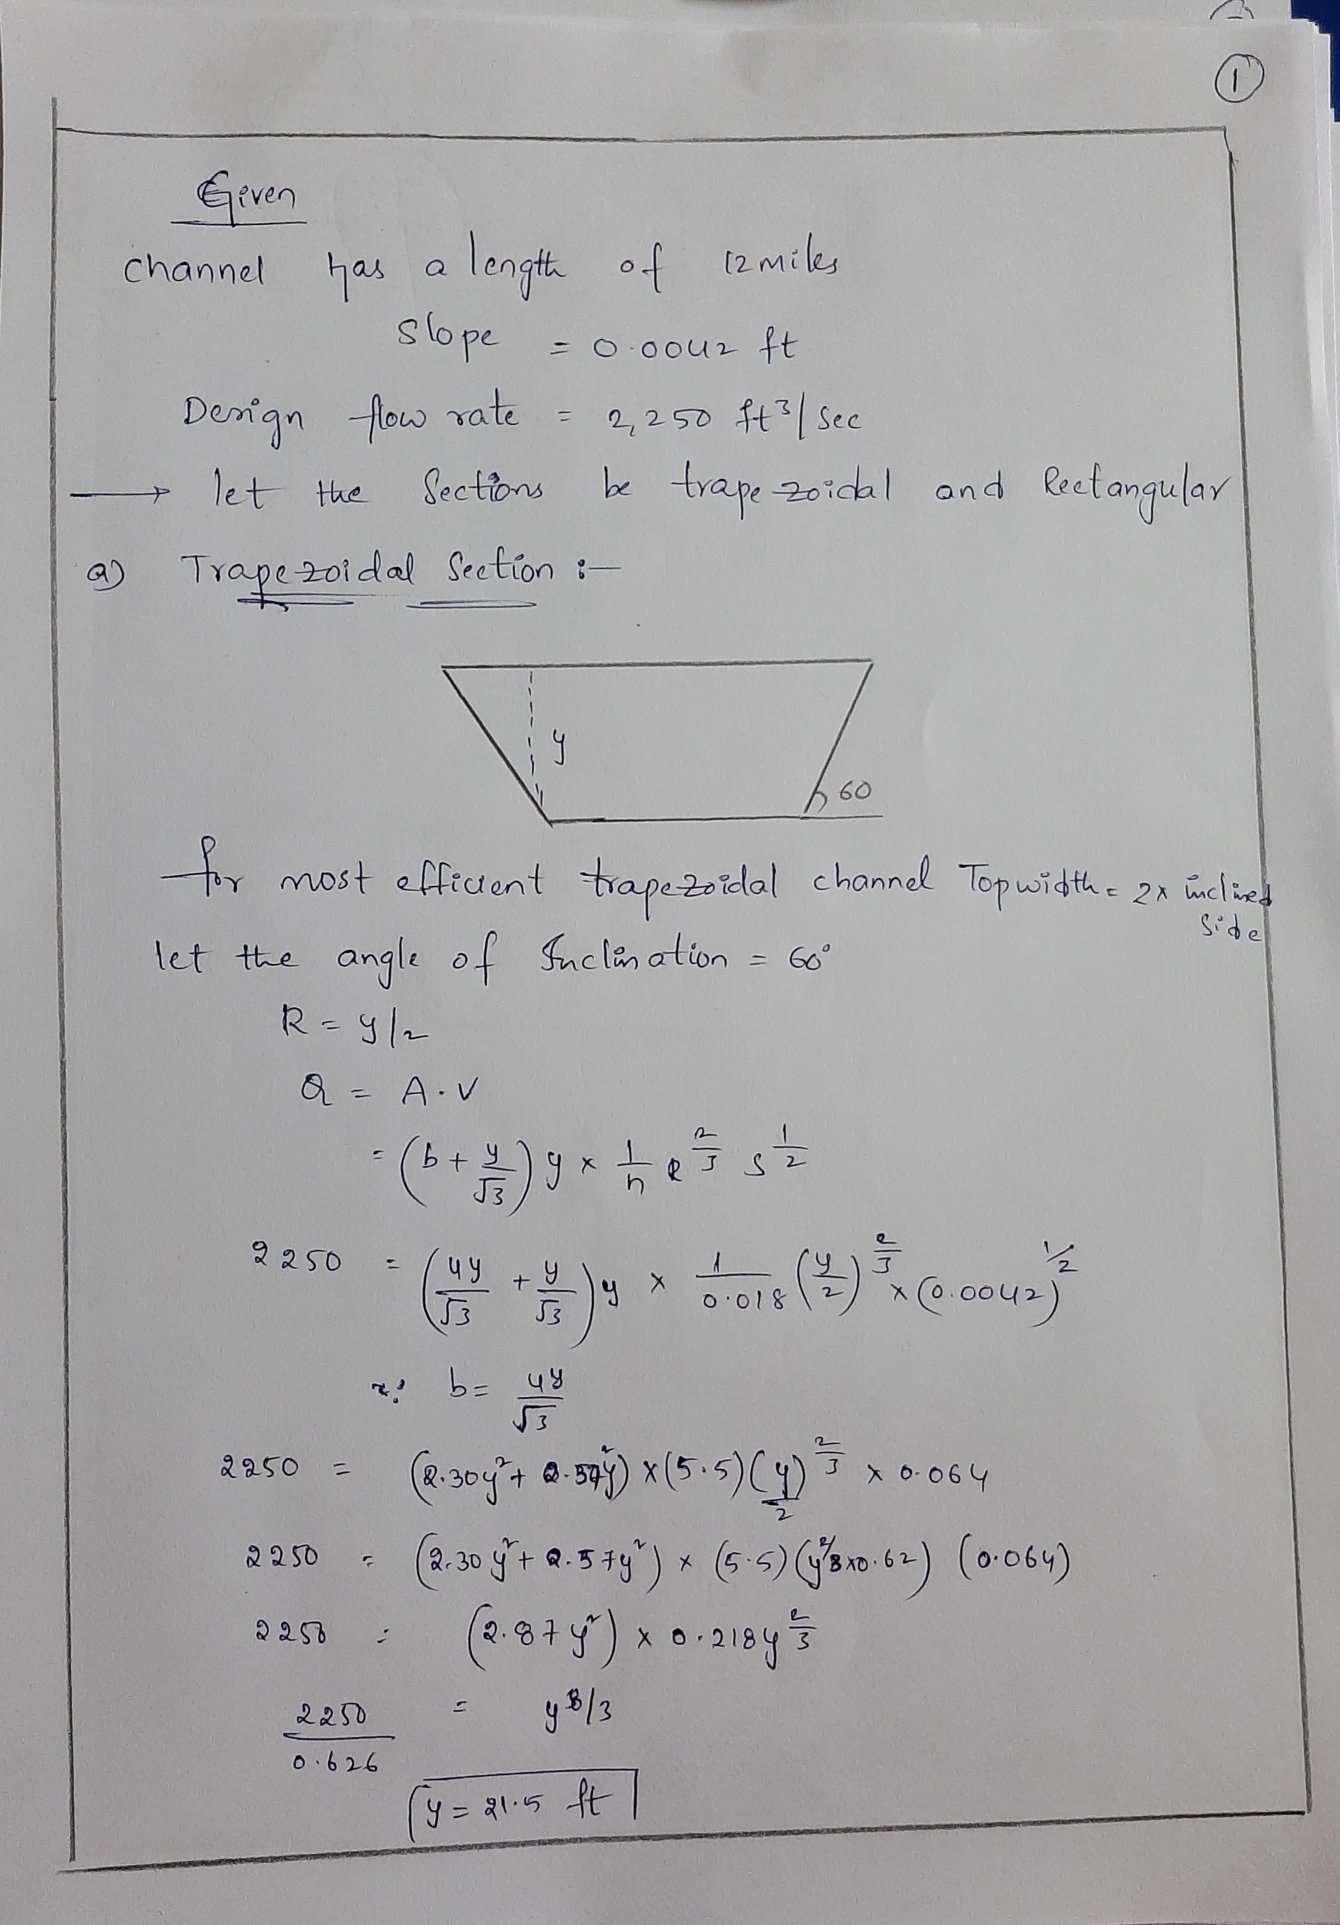 1
Given
channel has a length of 12 miles
Slope = 0.0042 ft
Design flow rate = 2,250 ft³/sec
→ let the Sections be trapezoidal and Rectangular
a) Trapezoidal Section :-
y
60
for most efficient trapezoidal channel Topwidth = 2x inclined side
let the angle of Inclination = 60°
R = y/2
Q = A.V
= (b + y/√3) y × 1/n R^2/3 S^1/2
2250 = (4y/√3 + y/√3) y × 1/0.018 (y/2)^2/3 × (0.0042)^1/2
b = 4y/√3
2250 = (2.30y² + 0.57y²) × (5.5) (y/2)^2/3 × 0.064
2250 = (2.30 y² + 0.57y²) × (5.5) (y^2/3 x0.62) (0.064)
2250 = (2.87 y²) × 0.218y^2/3
2250/0.626 = y^8/3
y = 21.5 ft